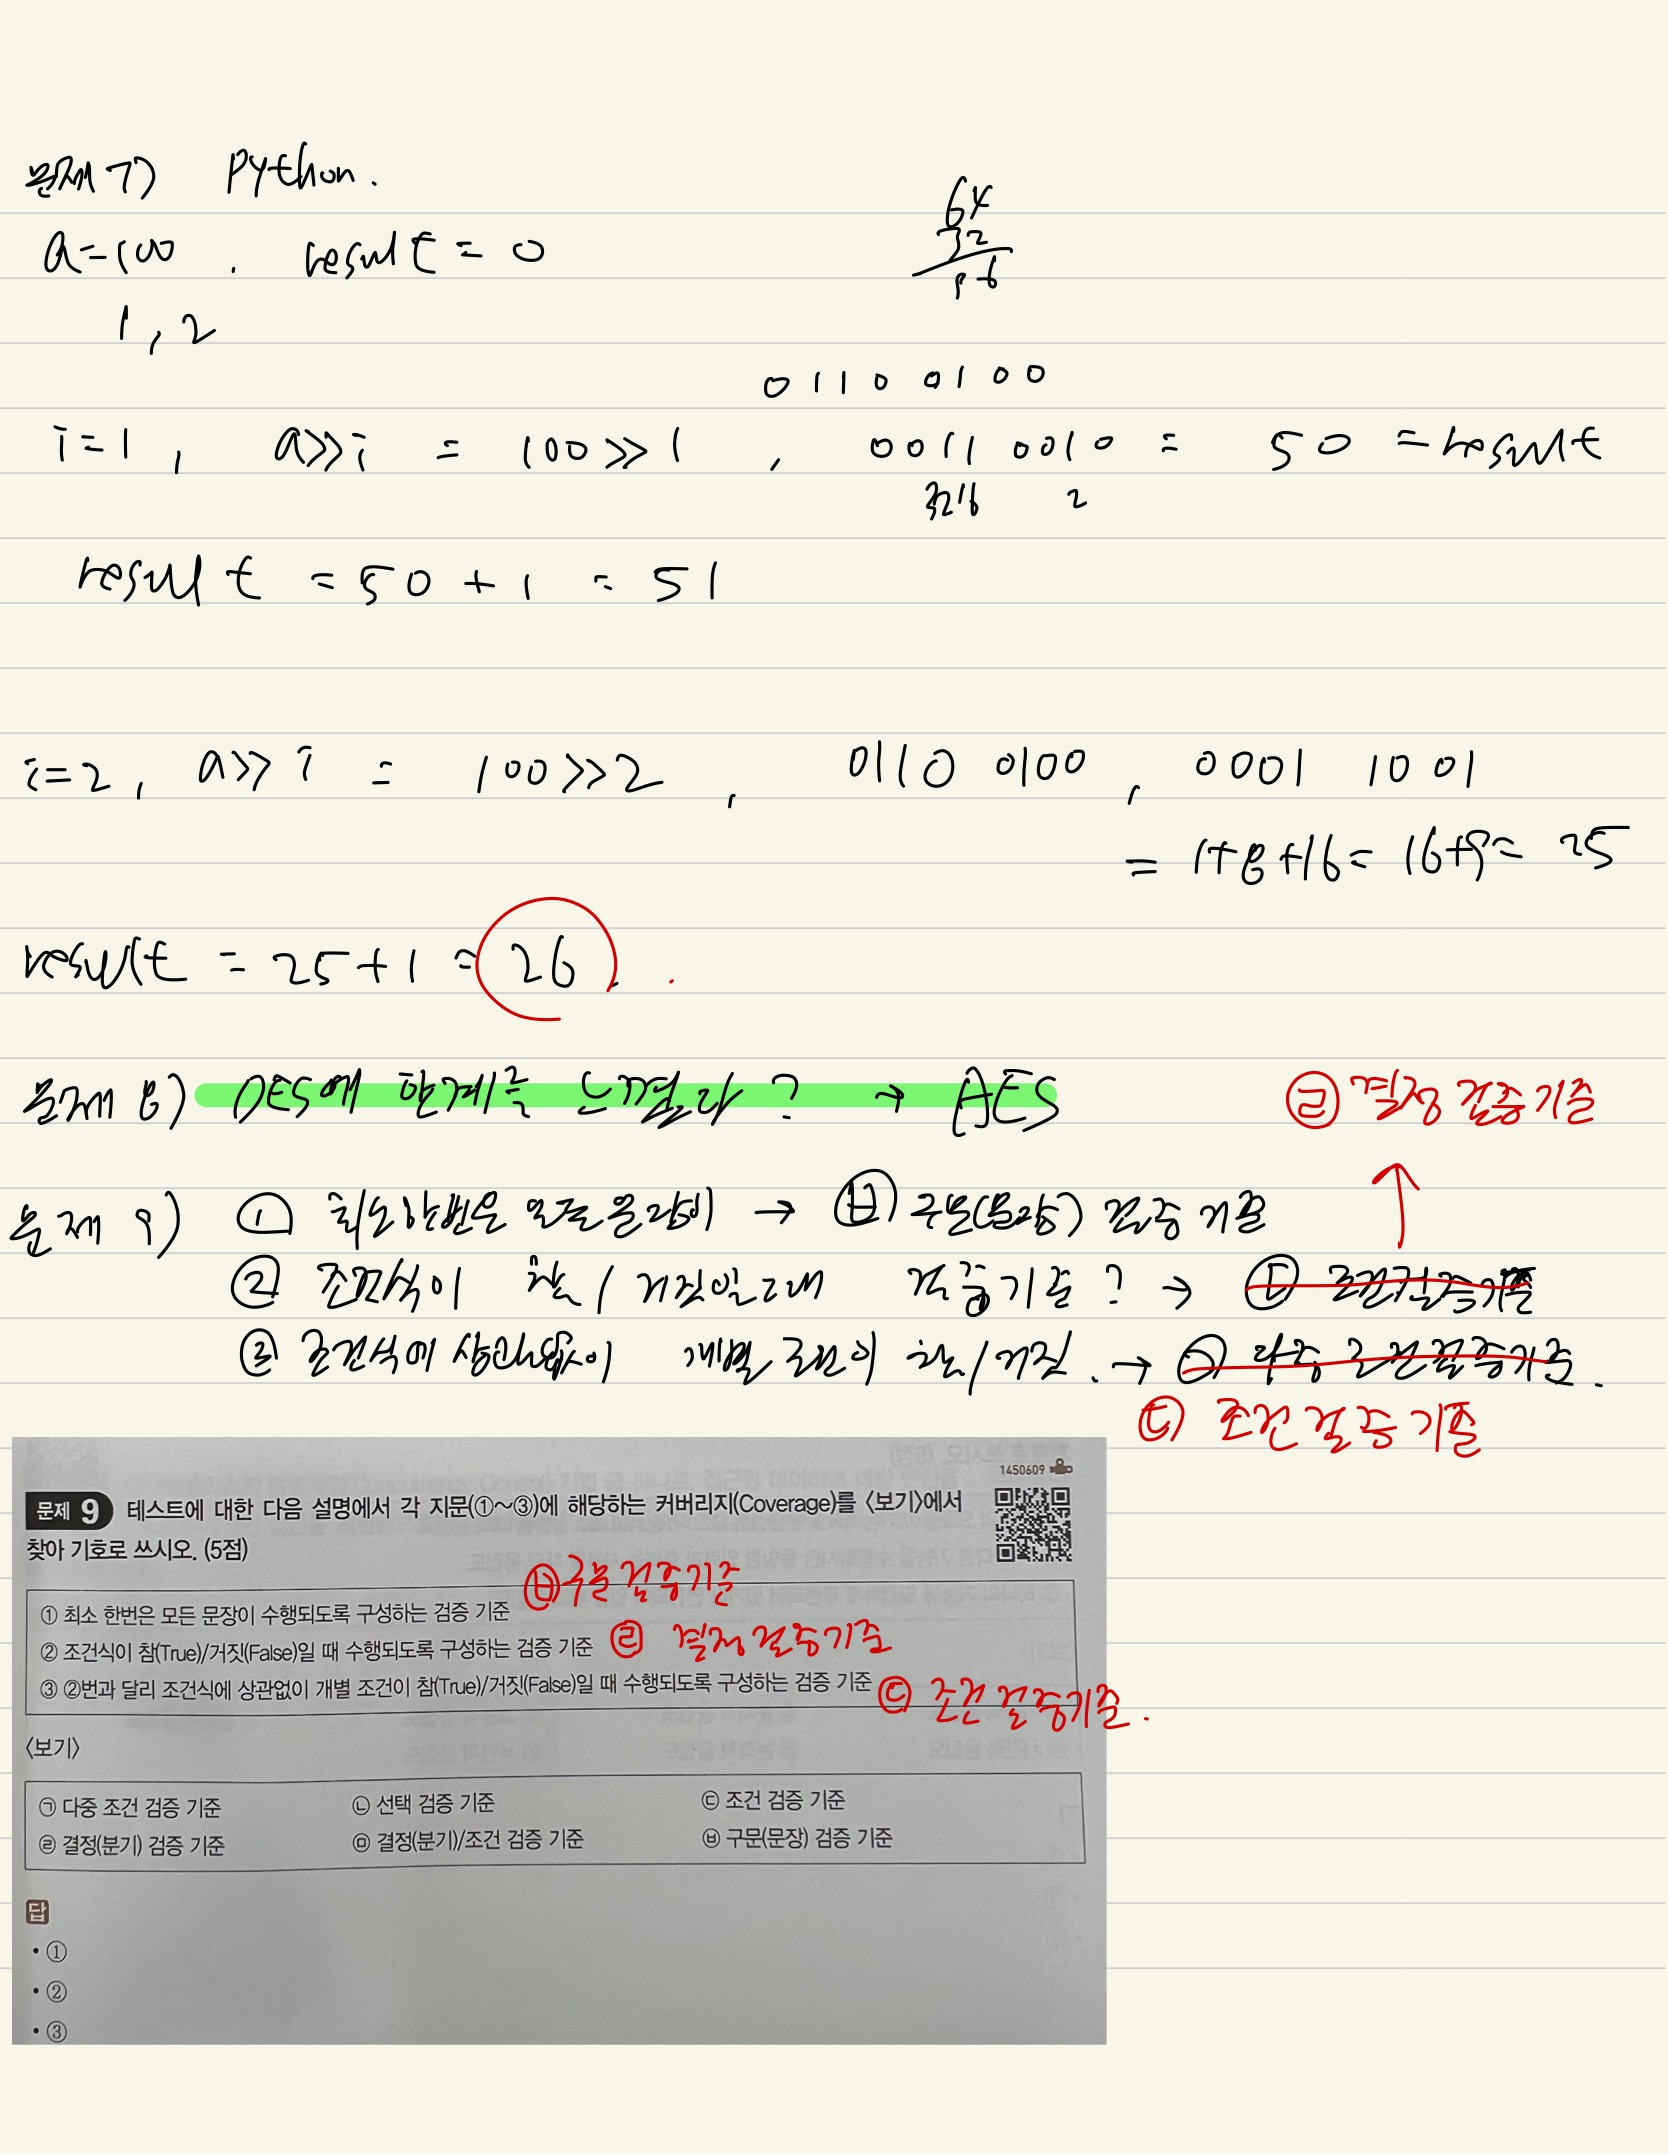 문제 7) Python.
a=100 . result = 0
64
32
96
1, 2
0110 0100
i=1, a>>i = 100>>1, 0011 0010 = 50 =result
32 16 2
result = 50 + 1 = 51
i=2, a>>i = 100>>2, 0110 0100, 0001 1001
= 1+8+16= 16+9= 25
result = 25+1 = 26.
문제 8) DES에 한계를 느꼈다? → AES
㉣ 결정 검증 기준
문제 9) ① 최소 한번은 모든 문장이 → ㉥ 구문(문장) 검증 기준
② 조건식이 참/거짓일 때 검증기준? → ㉢ 조건검증기준
③ 조건식에 상관없이 개별 조건이 참/거짓. → ㉠ 다중 조건검증기준.
㉢ 조건 검증 기준
1450609
문제 9 테스트에 대한 다음 설명에서 각 지문(①~③)에 해당하는 커버리지(Coverage)를 〈보기〉에서
찾아 기호로 쓰시오. (5점)
① 최소 한번은 모든 문장이 수행되도록 구성하는 검증 기준 ㉥구문 검증기준
② 조건식이 참(True)/거짓(False)일 때 수행되도록 구성하는 검증 기준 ㉣ 결정검증기준
③ ②번과 달리 조건식에 상관없이 개별 조건이 참(True)/거짓(False)일 때 수행되도록 구성하는 검증 기준 ㉢ 조건 검증기준.
〈보기〉
㉠ 다중 조건 검증 기준 ㉡ 선택 검증 기준 ㉢ 조건 검증 기준
㉣ 결정(분기) 검증 기준 ㉤ 결정(분기)/조건 검증 기준 ㉥ 구문(문장) 검증 기준
답
• ①
• ②
• ③